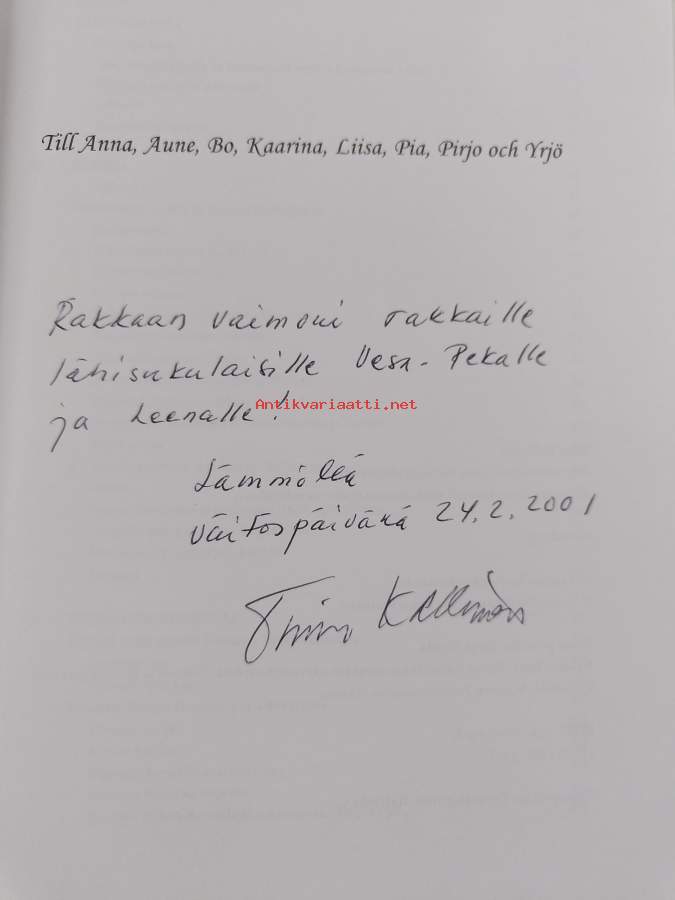 Till Anna, Aune, Bo, Kaarina, Liisa, Pia, Pirjo och Yrjö
Rakkaan vaimoni rakkaille
lähisukulaisille Vesa-Pekalle
ja Leenalle!
Antikvariaatti.net
Lämmöllä
väitöspäivänä 24.2.2001